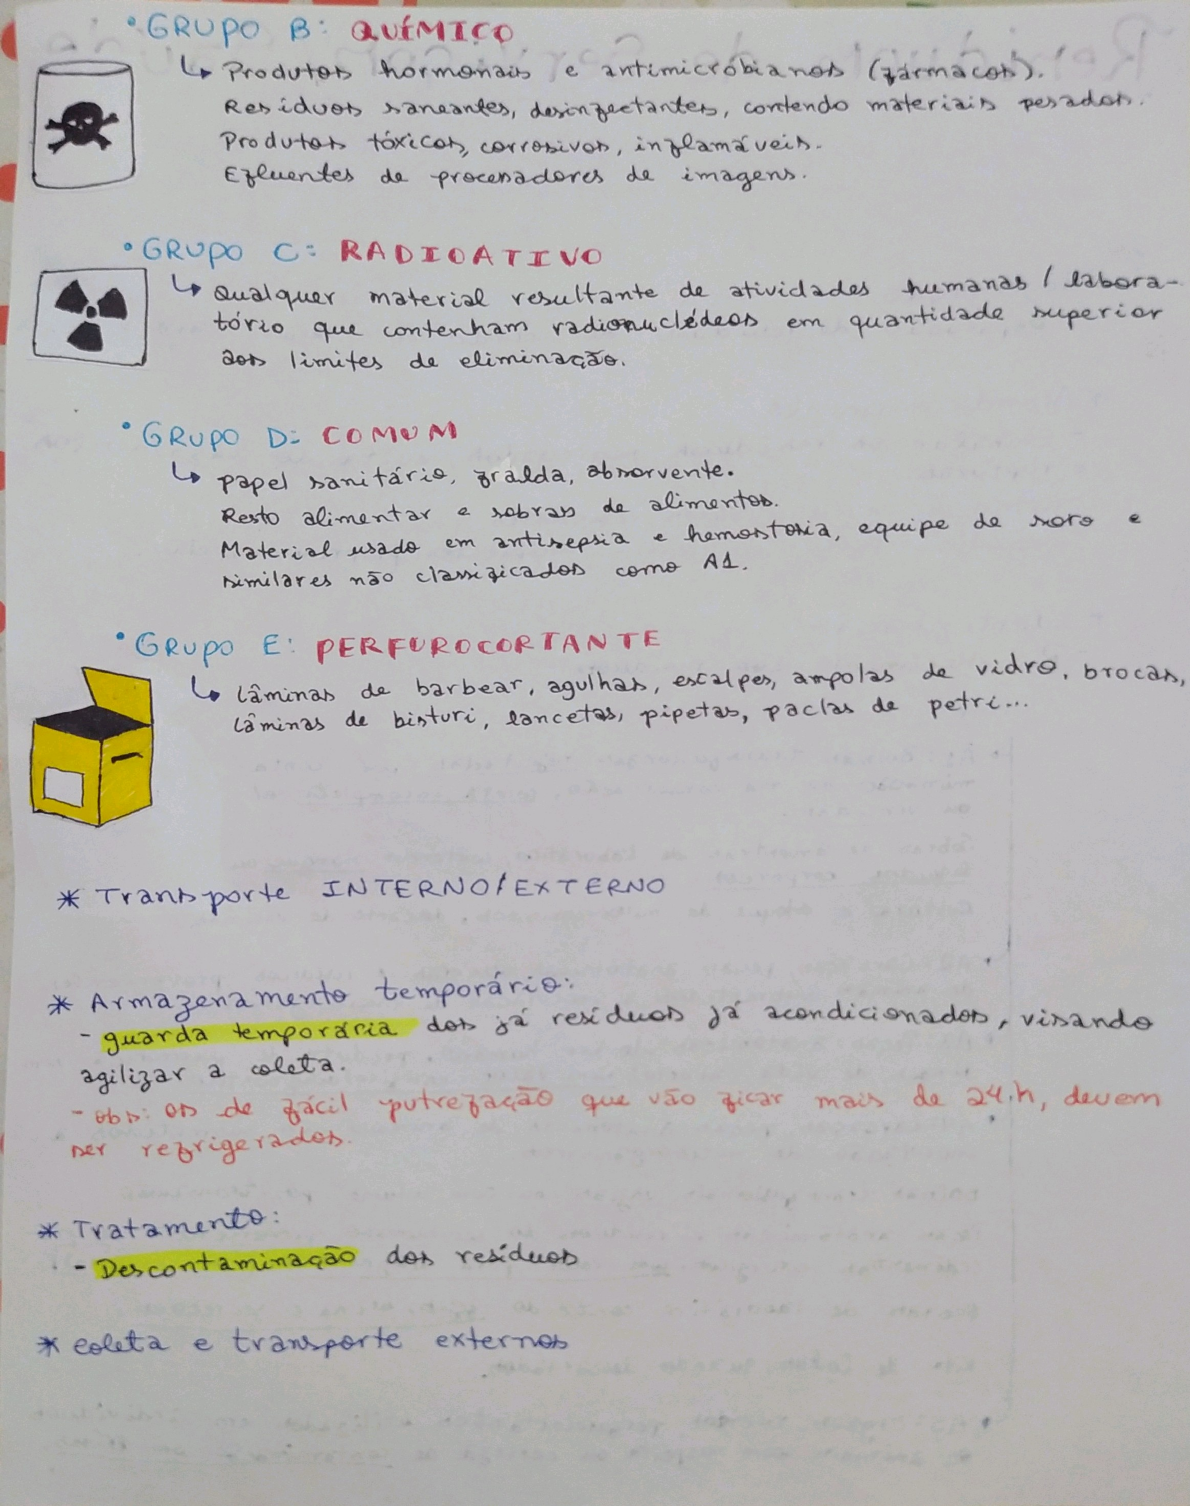 • GRUPO B: QUÍMICO
↳ Produtos hormonais e antimicróbianos (fármacos).
Resíduos saneantes, desinfectantes, contendo materiais pesados.
Produtos tóxicos, corrosivos, inflamáveis.
Efluentes de procesadores de imagens.
• GRUPO C: RADIOATIVO
↳ Qualquer material resultante de atividades humanas / labora-
tório que contenham radionuclédeos em quantidade superior
aos limites de eliminação.
• GRUPO D: COMUM
↳ papel sanitário, fralda, absorvente.
Resto alimentar e sobras de alimentos.
Material usado em antisepsia e hemostosia, equipe de soro e
similares não classificados como A1.
• GRUPO E: PERFUROCORTANTE
↳ lâminas de barbear, agulhas, escalpes, ampolas de vidro, brocas,
lâminas de bisturi, lancetas, pipetas, paclas de petri...
* Transporte INTERNO/EXTERNO
* Armazenamento temporário:
- guarda temporária dos já resíduos já acondicionados, visando
agilizar a coleta.
- obs: os de fácil putrefação que vão ficar mais de 24.h, devem
ser refrigerados.
* Tratamento:
- Descontaminação dos resíduos
* coleta e transporte externos